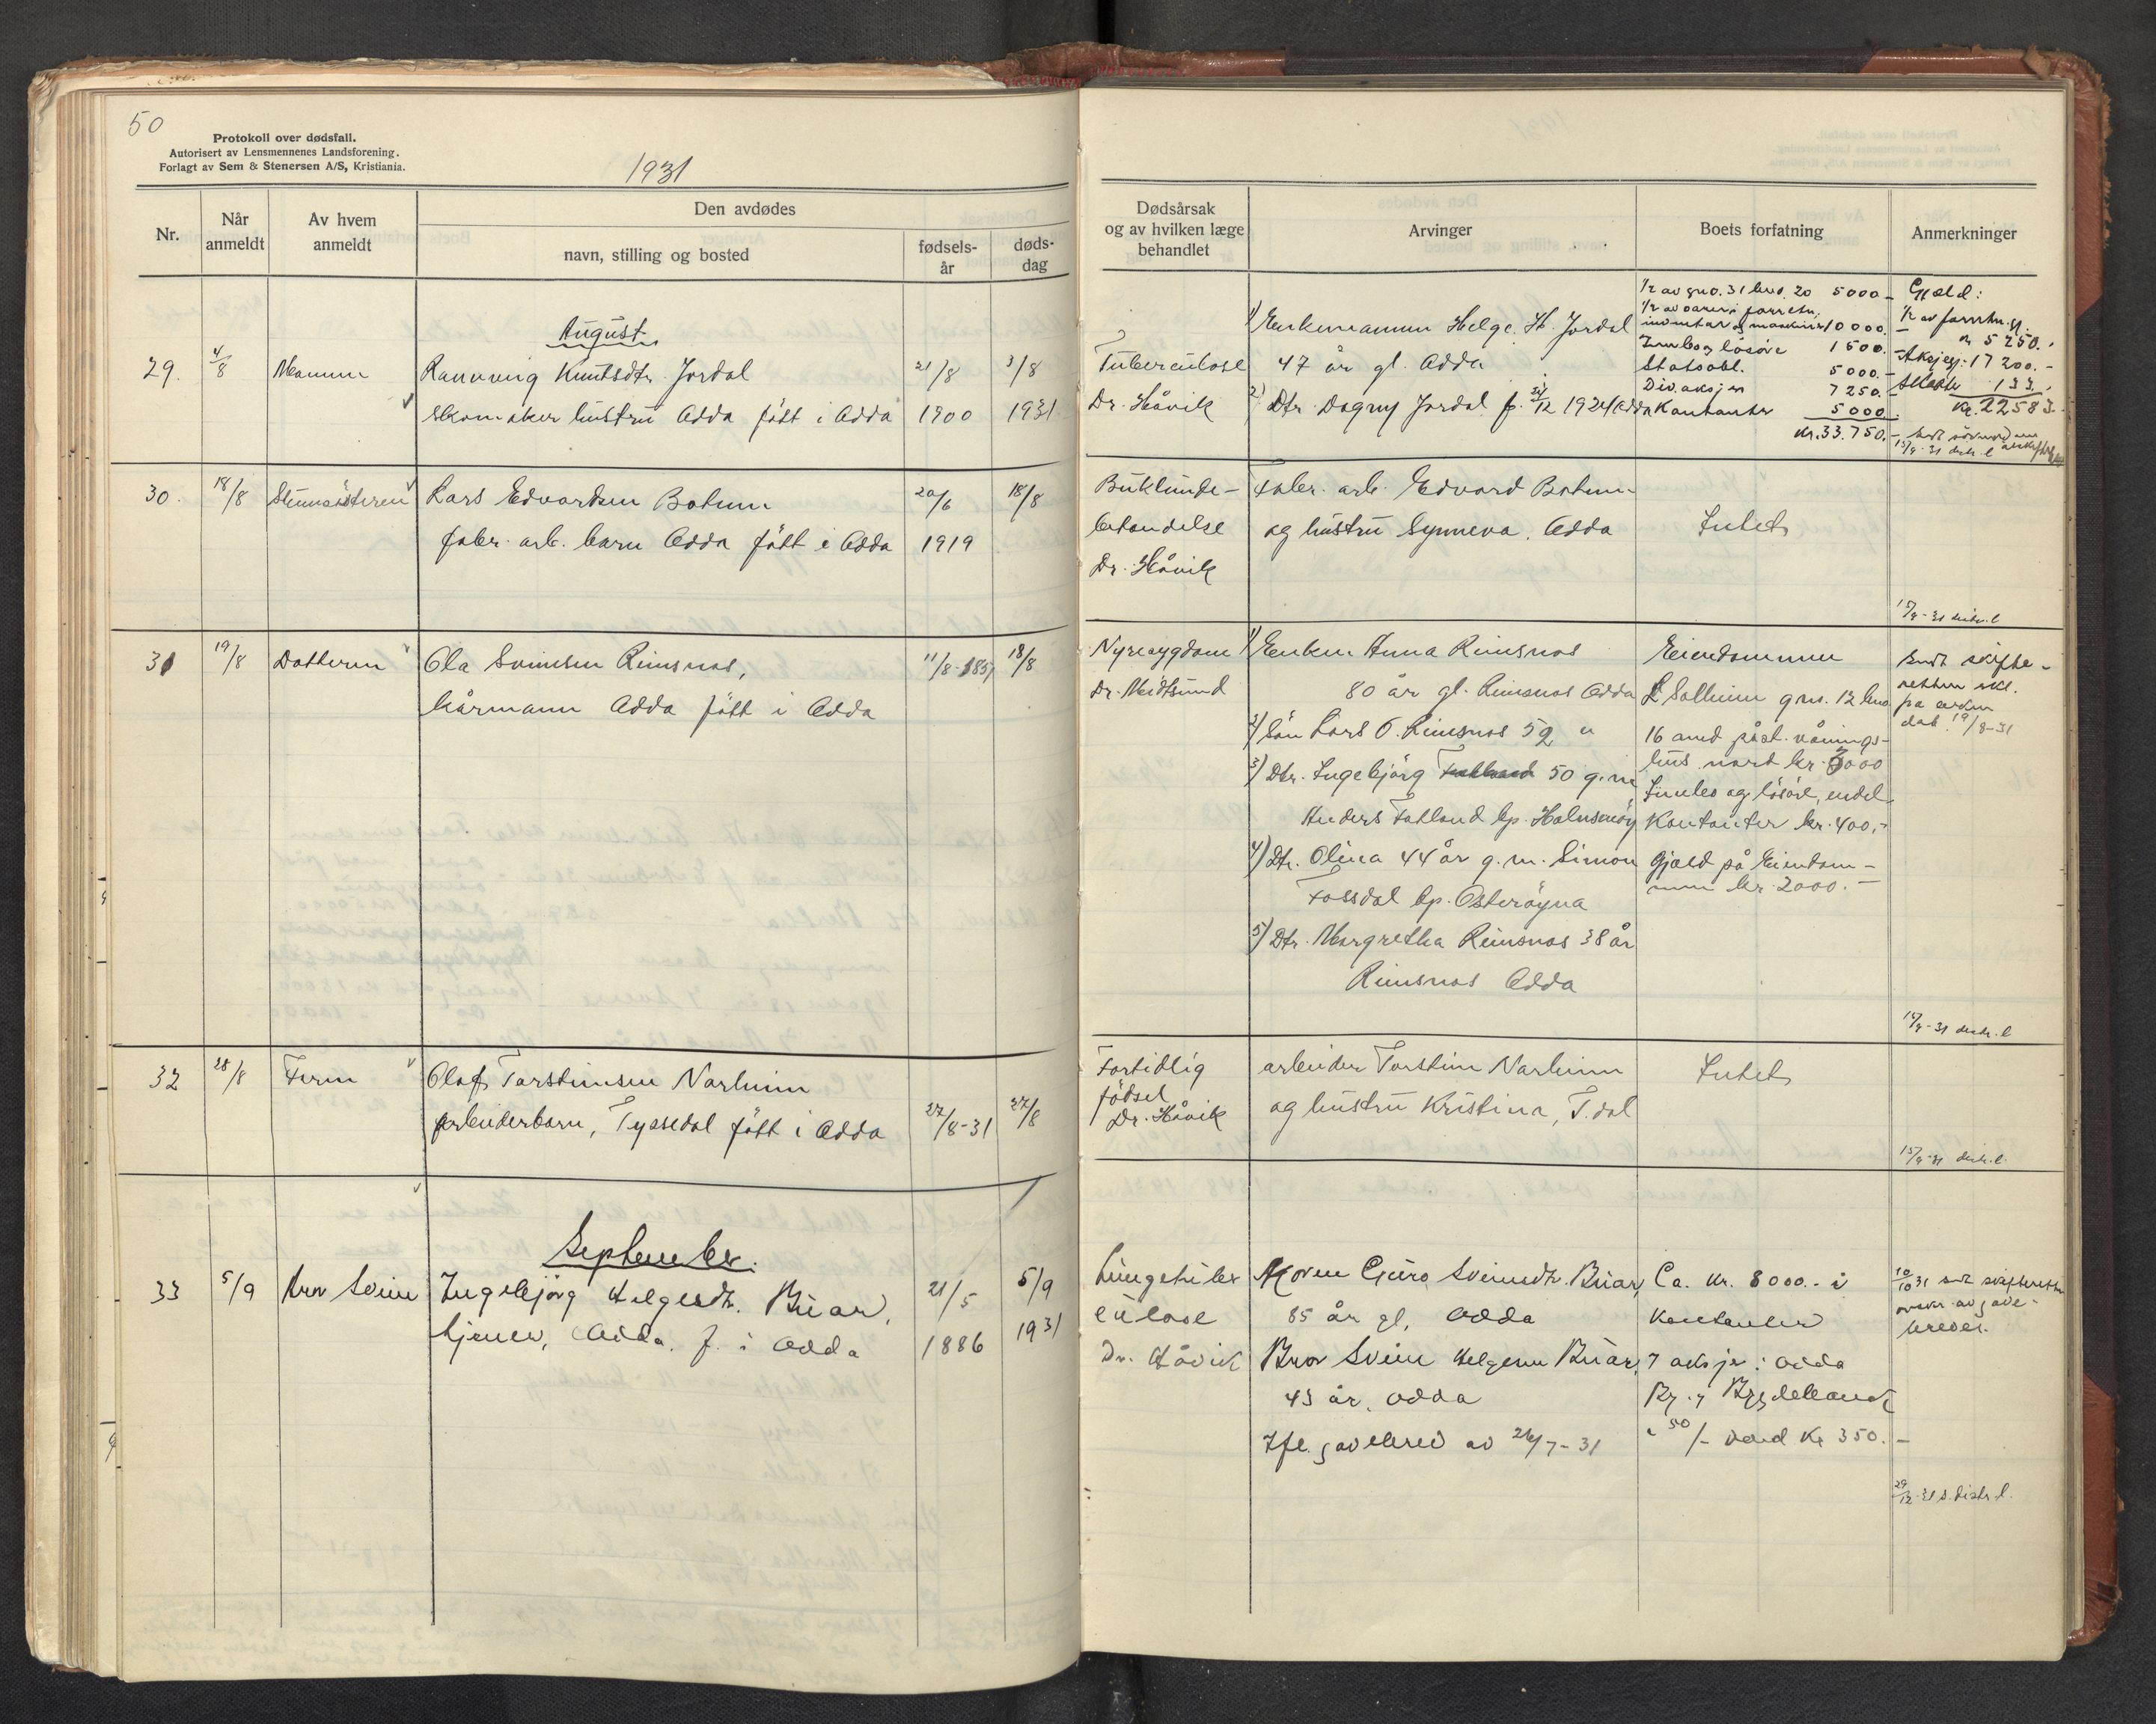 50
Protokoll over dødsfall.
Autorisert av Lensmennenes Landsforening.
Forlagt av Sem & Stenersen A/S, Kristiania.
1931
Nr.
Når anmeldt
Av hvem anmeldt
Den avdødes
navn, stilling og bosted
fødsels-år
døds-dag
Dødsårsak
og av hvilken læge
behandlet
Arvinger
Boets forfatning
Anmerkninger
August
29. 4/8 Mannen Rannveig Knutsdtr. Jordal 21/8 3/8
skomaker hustru Odda født i Odda 1900 1931
Tuberculose
Dr. Håvik
1) Enkemannen Helge H. Jordal
47 år gl. Odda
2) Dtr. Dagny Jordal f. /12 1924 Odda
1/2 av gno. 31 bno. 20 5000.-
1/2 av varer i forretn.
inventar og maskiner 10000.-
Innbo og lösöre 1500.-
Statsobl. 5000.-
Div. aksjer 7250.-
Kontanter 5000.-
Kr. 33.750.-
Gjæld:
1/2 av forretn. gj.
5250.-
Aksjegj. 17200.-
133.-
Kr. 22583.-
15/9-31 distr. l
30. 18/8 Lars Edvardsen Botnen 20/6 18/8
fabr. arb. barn Odda født i Odda 1919
Buklunde-
betendelse
Dr. Håvik
Fabr. arb. Edvard Botnen
og hustru Synneva, Odda
Intet
15/9-31 distr. l
31 19/8 Datteren Ola Sveinsen Reinsnos, 11/8-1851 18/8
kårmann Odda født i Odda
Nyresygdom
Dr. Meidtsund
1) Enken Anna Reinsnos
80 år gl. Reinsnos Odda
2) Sön Lars O. Reinsnos 52 "
3) Dtr. Ingebjörg 50 g.m.
Anders Fatland bp. Halsnöy
4) Dtr. Olina 44 år g.m. Simon
Fossdal bp. Osteröyna
5) Dtr. Margretha Reinsnos 38 år
Reinsnos Odda
Eiendommen
Solheim gno. 12 bno.
16 med påst. vånings-
hus verd kr. 3000
Innbo og lösöre, endel
Kontanter kr. 400,-
Gjæld på Eiendom-
men kr. 2000.-
Sendt skifte-
retten
på enken
dat. 19/8-31
15/9-31 distr. l
32 28/8 Faren Olaf Torsteinsen Narheim
arbeiderbarn, Tyssedal født i Odda 27/8-31 27/8
Fortidlig
födsel
Dr. Håvik
arbeider Torstein Narheim
og hustru Kristina, T.dal
Intet
15/9-31 distr. l.
September.
33 5/9 Bror Svein Ingebjörg Helgesdtr. Buar, 21/5 5/9
tjener, Odda. f. i Odda 1886 1931
Lungetuber
culose
Dr. Håvik
Moren Guro Sveinsdtr. Buar,
85 år gl, Odda
Bror Svein Helgesen Buar,
43 år, Odda
Ifl. gavebrev av 26/7-31
Ca. kr. 8000.- i
Kontanter
7 aksjer i Odda
á 50/- verd Kr 350.-
10/10 31 sendt skifteretten
avskr. av gave-
brevet.
29/12-31 s. distr. l.